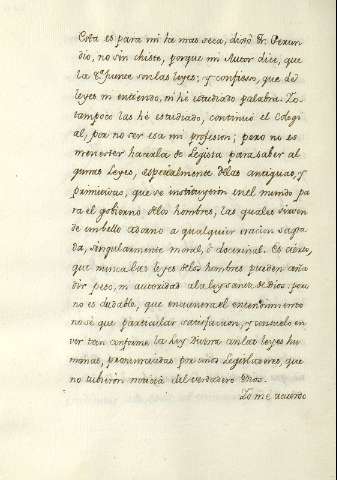 Esta es para mi la mas seca, dixo Fr. Gerun-
dio, no sin chiste, porque mi Autor dice, que
la 7.ª fuente son las leyes; y confiesso, que de
leyes ni entiendo, ni hè estudiado palabra. Yo
tampoco las hè estudiado, continuò el Colegi-
al, por no ser esa mi profesion; pero no es
menester hacerla de Legista para saber al
gunas Leyes, especialmente delas antiguas, y
primitivas, que se instituyeròn en el mundo pa
ra el gobierno delos hombres, las quales sirven
de un bello adorno a qualquier oracion sagra
da, singularmente moral, ò doctrinal. Es cierto,
que nunca las leyes delos hombres pueden aña
dir peso, ni autoridad ala ley santa de Dios: pero
no es dudable, que encuentra el entendimiento
no sè que particular satisfacion, y consuelo en
ver tan conforme la Ley Divina con las leyes hu
manas, promulgadas por unos Legisladores, que
no tubieròn noticia del verdadero Dios.
Yo me acuerdo